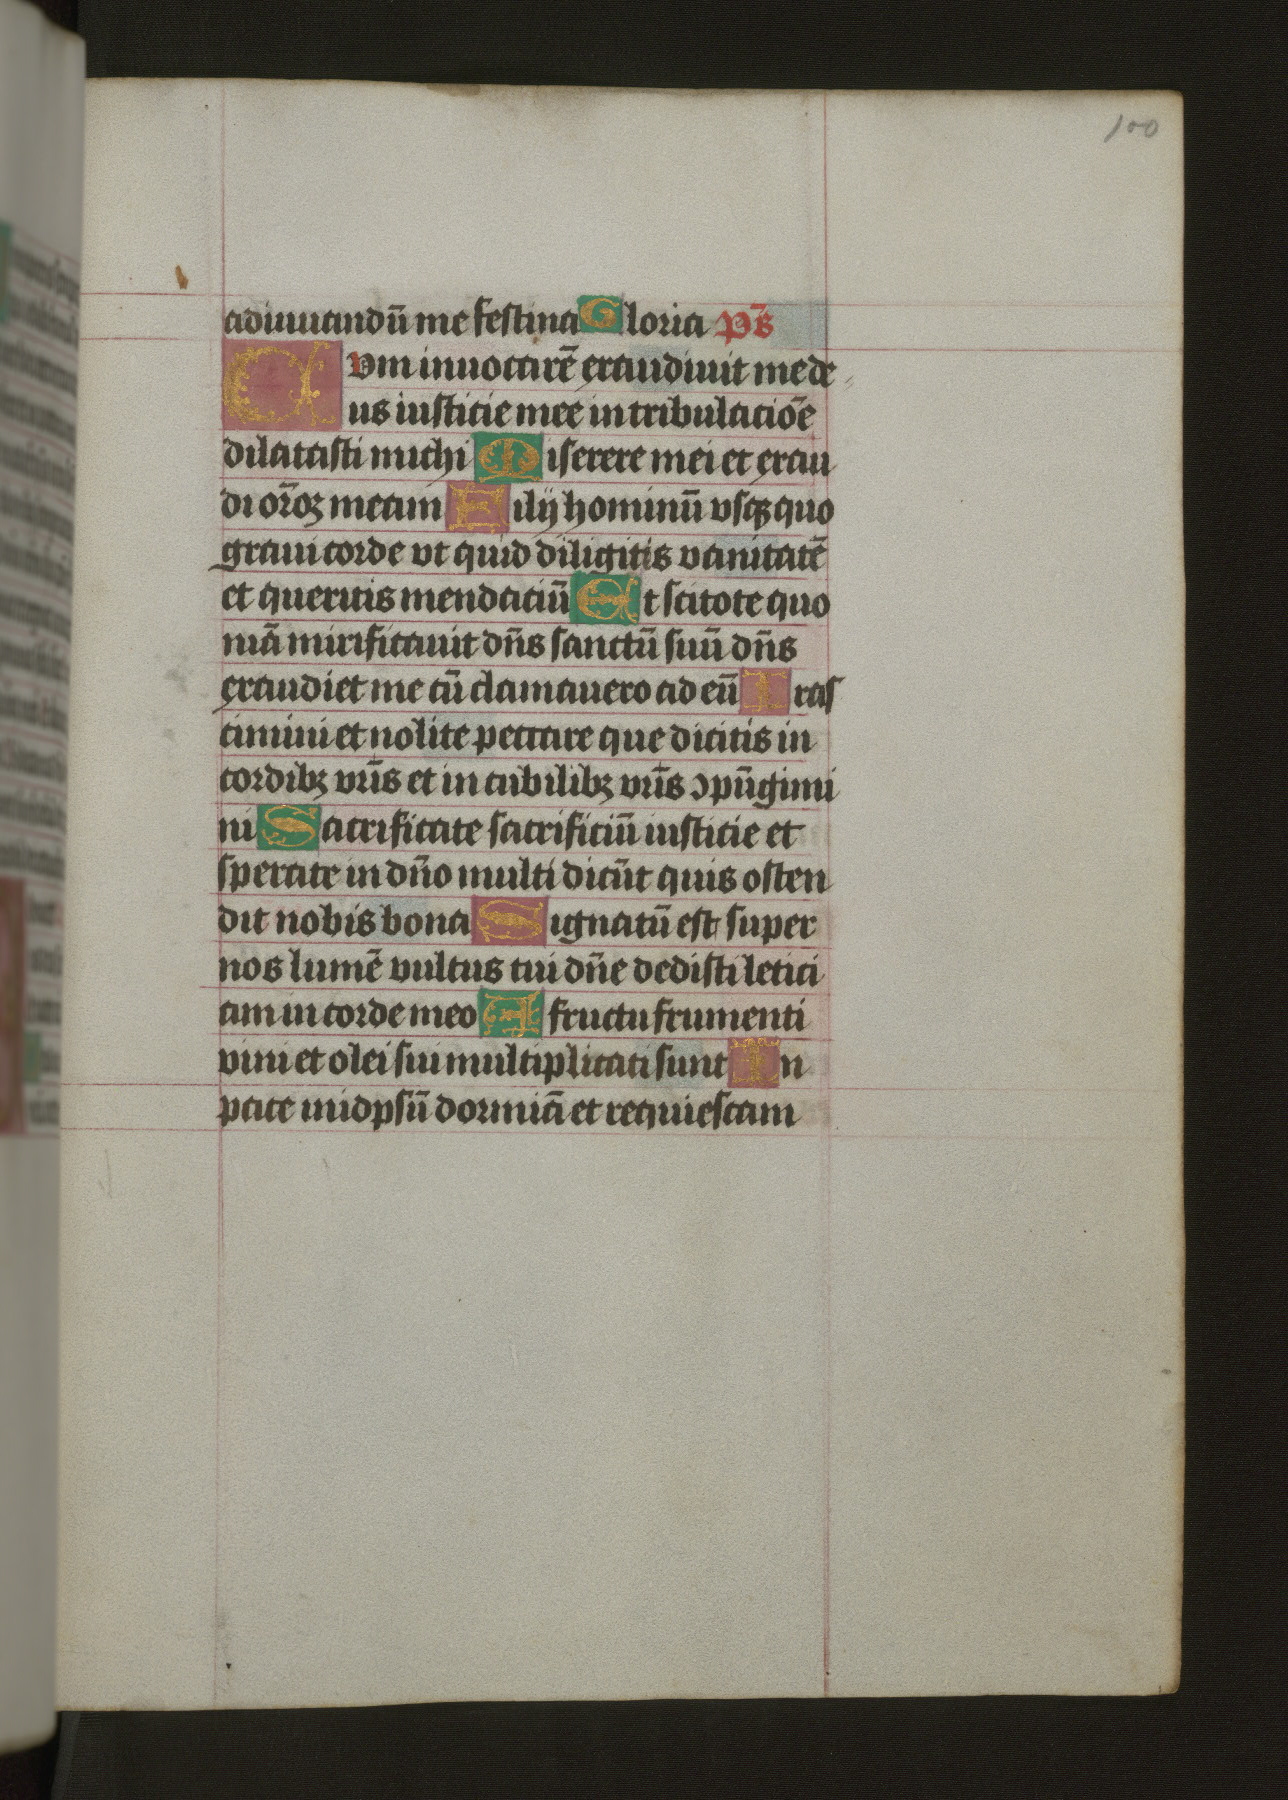 100
adiuuandū me festina Gloria p̄s
Cvm inuocarē exaudiuit me de
us iusticie mee in tribulaciōe
dilatasti michi Miserere mei et exau
di orōꝫ meam Filij hominū vsqꝫ quo
graui corde vt quid diligitis vanitatē
et queritis mendaciū Et scitote quo
niā mirificauit dn̄s sanctū suū dn̄s
exaudiet me cū clamauero ad eū Iras
cimini et nolite peccare que dicitis in
cordibꝫ vr̄is et in cubilibꝫ vr̄is ↄpūgimi
ni Sacrificate sacrificiū iusticie et
sperate in dn̄o multi dicūt quis osten
dit nobis bona Signatū est super
nos lumē vultus tui dn̄e dedisti letici
am in corde meo A fructu frumenti
vini et olei sui multiplicati sunt In
pace in idpsū dormiā et requiescam